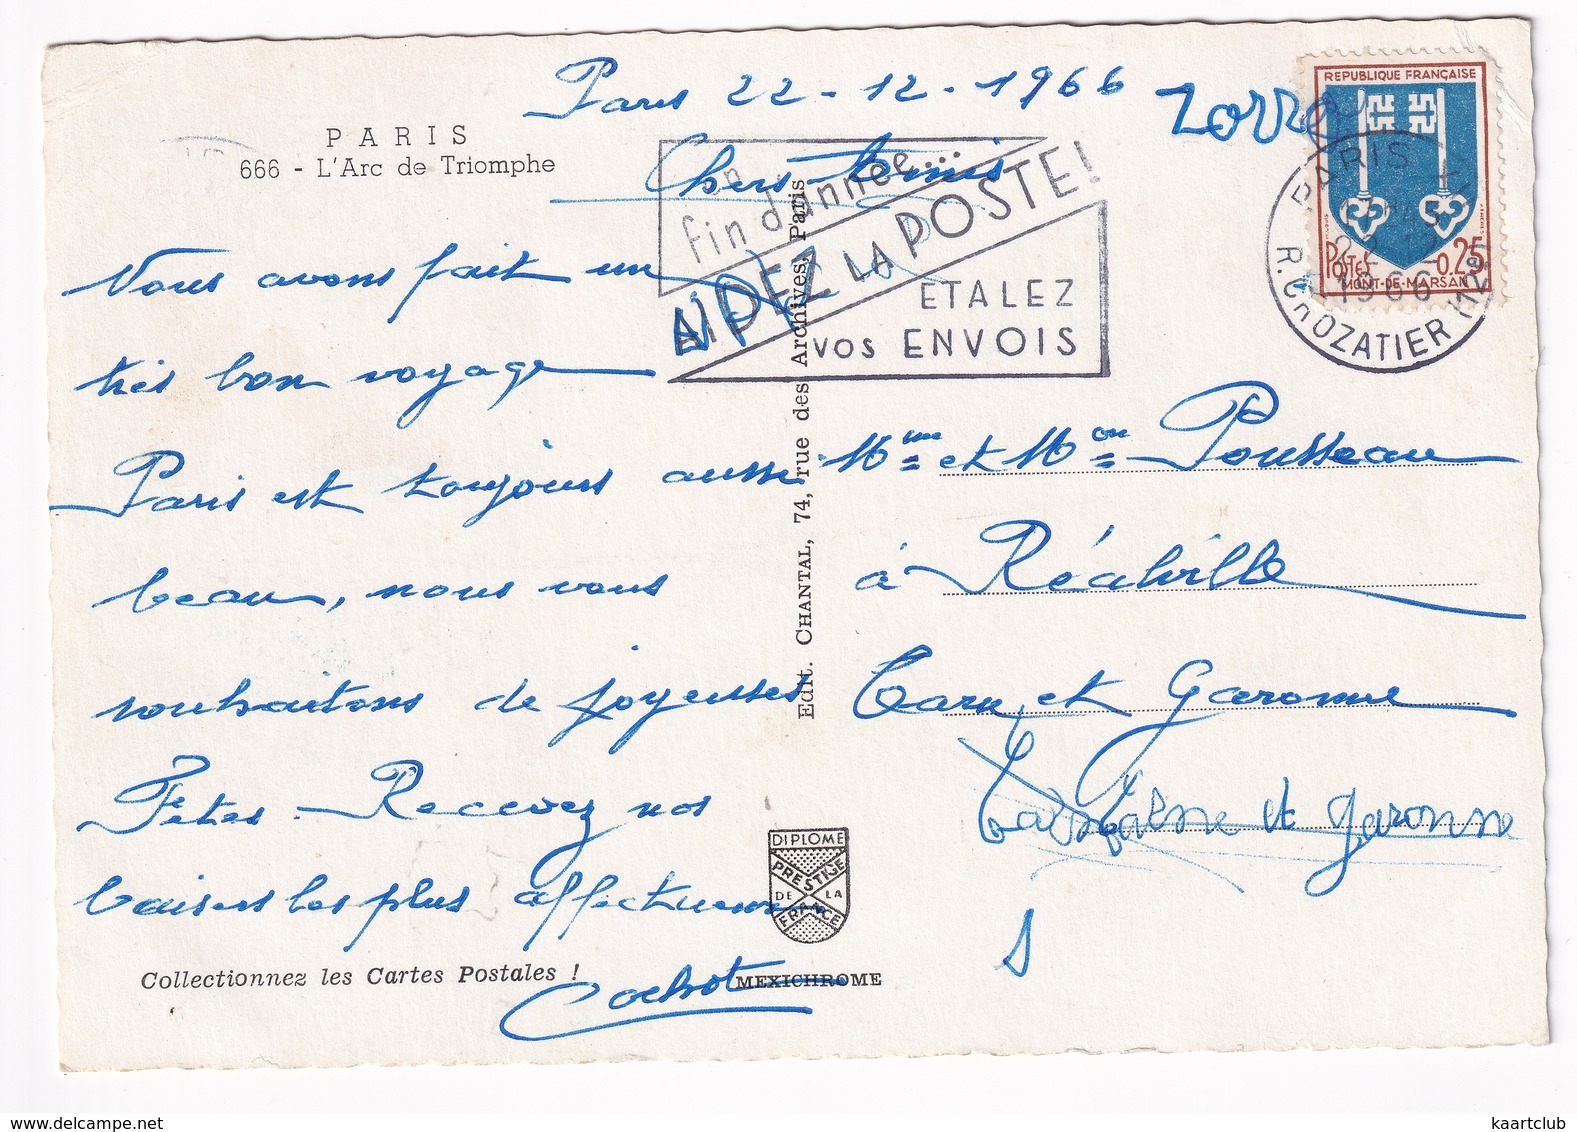 Paris 22-12-1966
Zorro
PARIS
666 - L'Arc de Triomphe
Chers Amis
Nous avons fait un
très bon voyage
Paris est toujours aussi
beau, nous vous
souhaitons de joyeuses
Fêtes. Recevez nos
baisers les plus affectueux
Cochot
Collectionnez les Cartes Postales !
en
fin d'année...
AIDEZ LA POSTE!
ETALEZ
VOS ENVOIS
REPUBLIQUE FRANÇAISE
POSTES 0.25
MONT-DE-MARSAN
PARIS XII
1966
R. CROZATIER (12e)
Edit. CHANTAL, 74, rue des Archives, Paris
Mme et Mon Pousseau
à Réalville
Tarn et Garonne
et Garonne
DIPLOME
PRESTIGE
DE LA
FRANCE
MEXICHROME
kaartclub